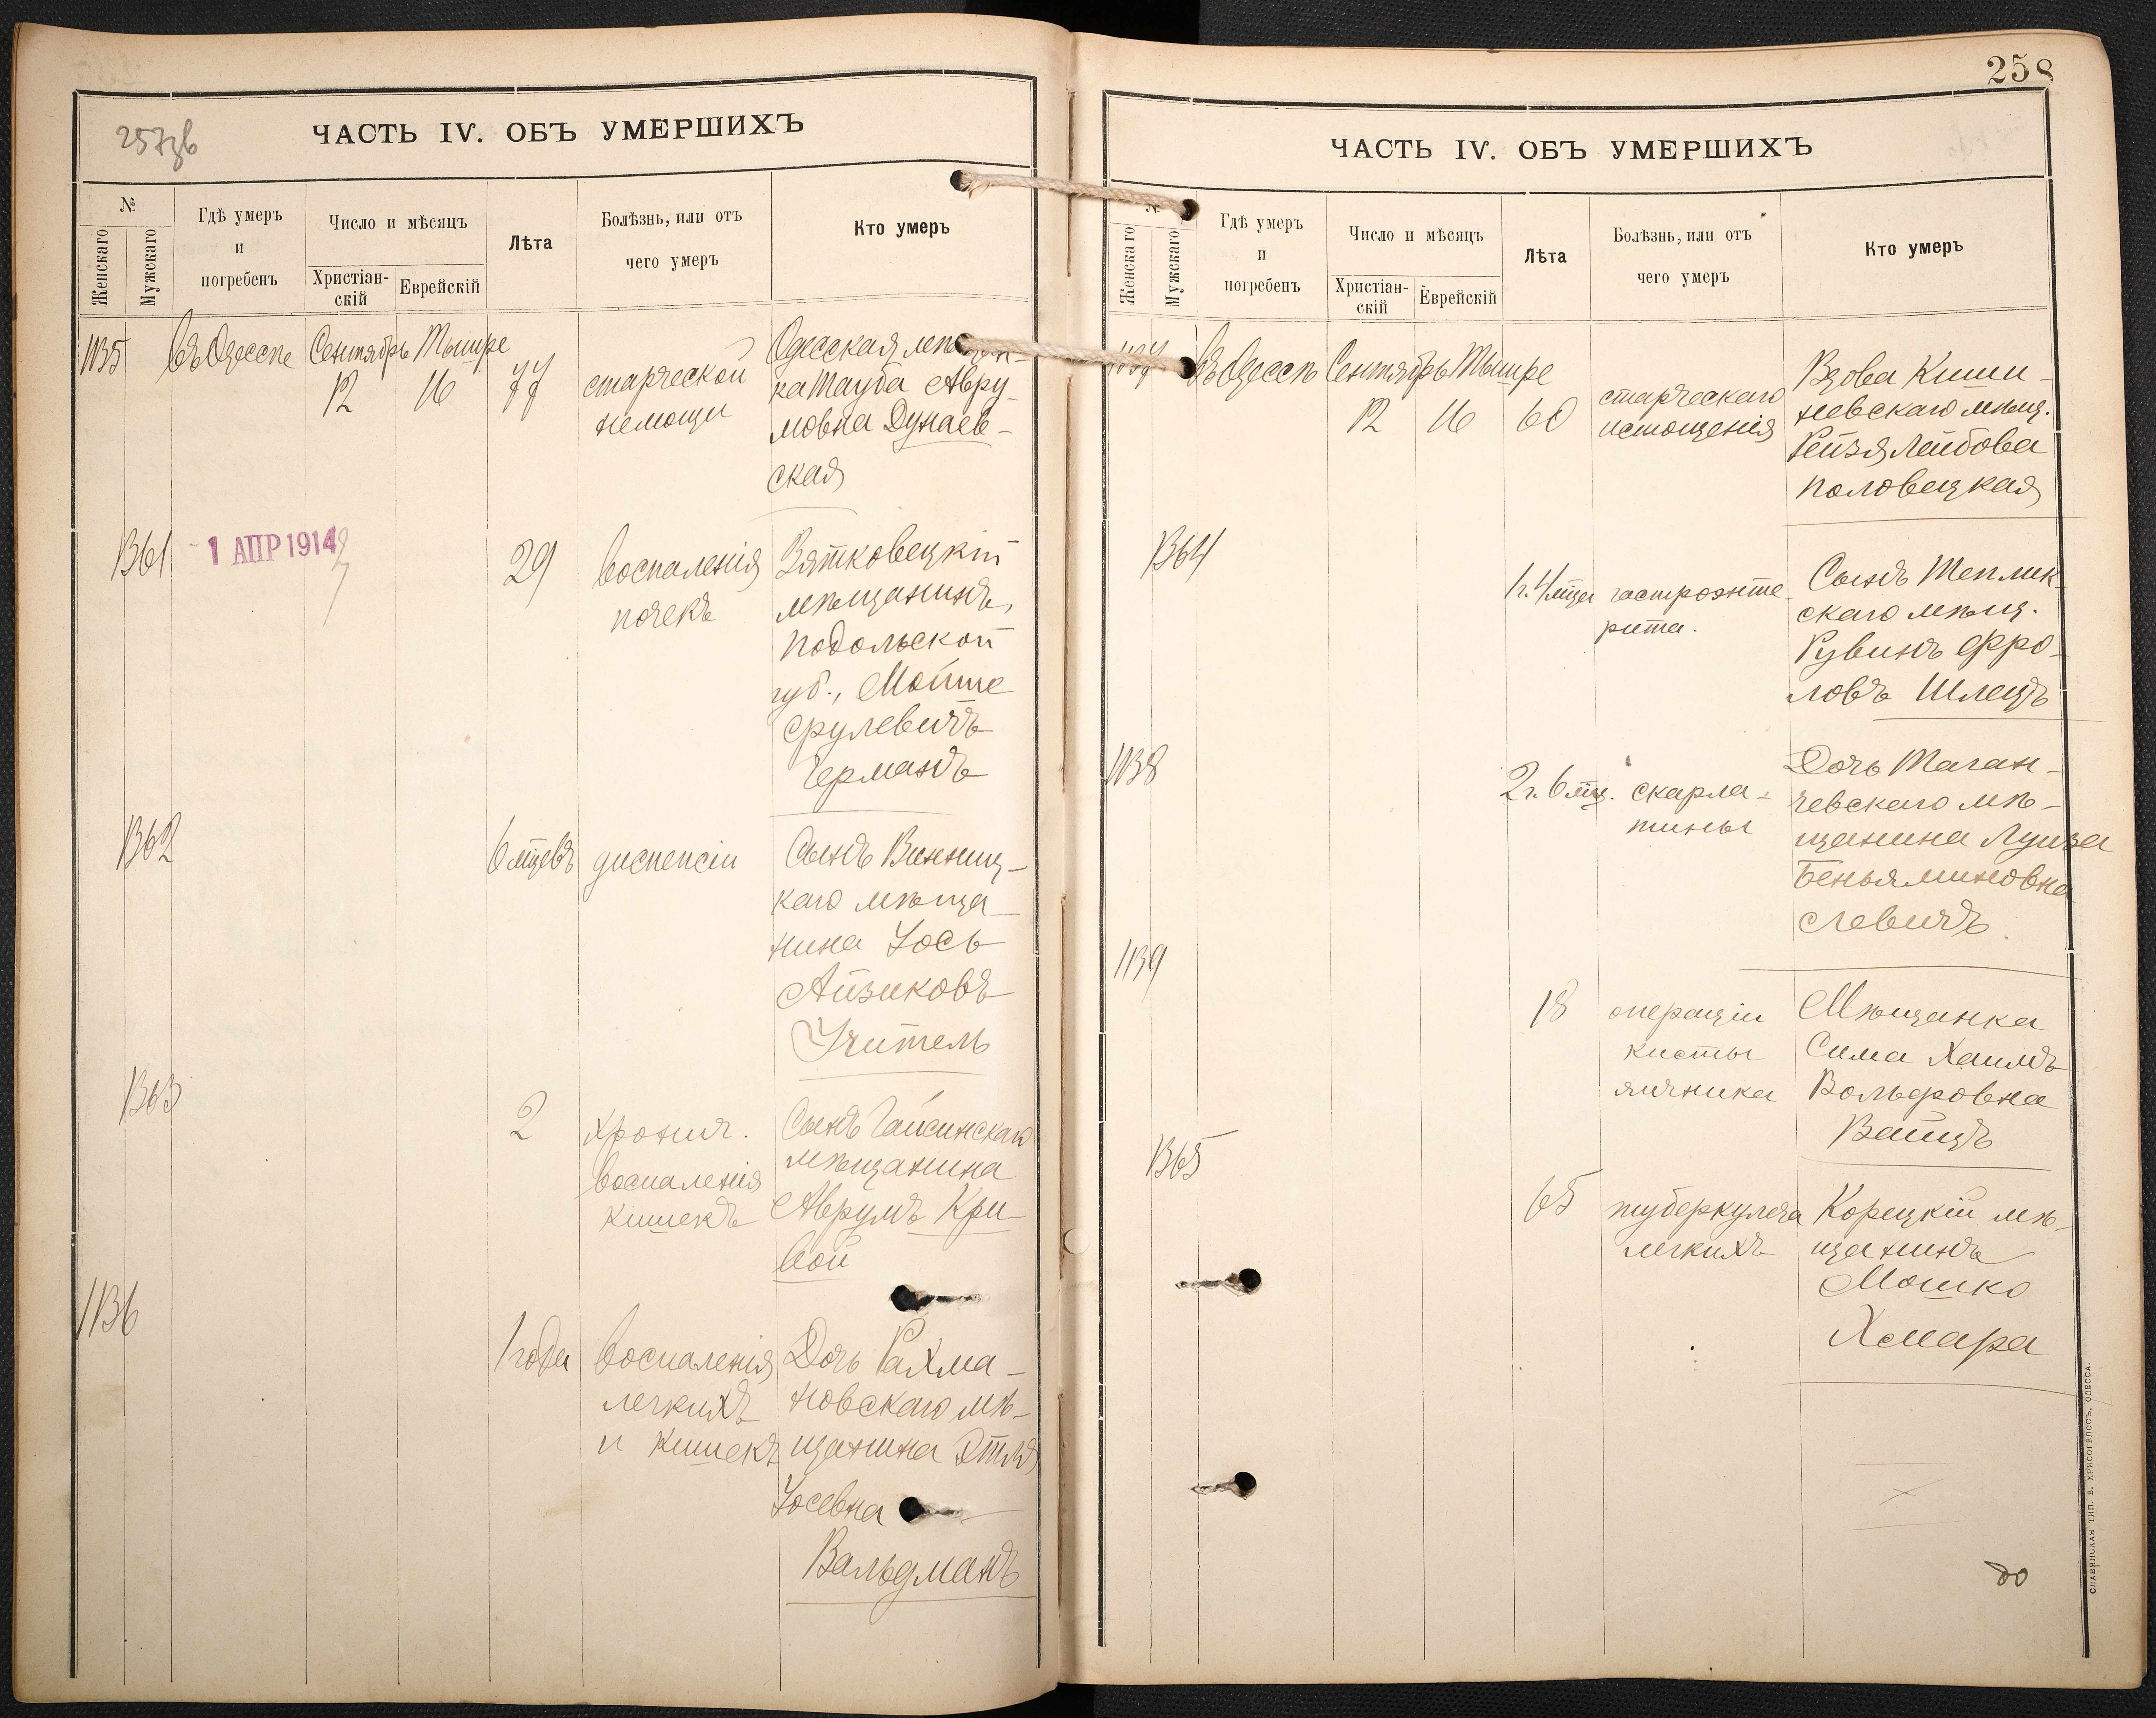 257зв
ЧАСТЬ IV. ОБЪ УМЕРШИХЪ
№
Женскаго
Мужскаго
Гдѣ умеръ
и
погребенъ
Число и мѣсяцъ
Христіан-
скій
Еврейскій
Лѣта
Болѣзнь, или отъ
чего умеръ
Кто умеръ
1135
въ Одессѣ
Сентябрь
12
Тышре
16
77
старческой
немощи
Одесская
ка Тауба Авру
мовна Дунаев-
ская
1361
1 АПР 1914
29
воспаленія
почекъ
Вятковецкій
мѣщанинъ,
Подольской
губ., Мойше
Срулевичъ
Германъ
1362
6 мцевъ
диспепсіи
Сынъ Винниц-
каго мѣща-
нина Іось
Айзиковъ
Учитель
1363
2
хронич.
воспаленія
кишекъ
Сынъ Гайсинскаго
мѣщанина
Аврумъ Кри-
вой
1136
1 года
воспаленія
легкихъ
и кишекъ
Дочь Рахма-
новскаго мѣ-
щанина Этля
Іосевна
Вальдманъ
258
ЧАСТЬ IV. ОБЪ УМЕРШИХЪ
№
Женскаго
Мужскаго
Гдѣ умеръ
и
погребенъ
Число и мѣсяцъ
Христіан-
скій
Еврейскій
Лѣта
Болѣзнь, или отъ
чего умеръ
Кто умеръ
1137
въ Одессѣ
Сентябрь
12
Тышре
16
60
старческаго
истощенія
Вдова Киши-
невскаго мѣщ.
Рейзя Лейбова
Половецкая
1364
1 г. 4 мца
гастроэнте-
рита.
Сынъ Теплик-
скаго мѣщ.
Рувинъ Фро-
ловъ Шлецъ
1138
2 г. 6 мц.
скарла-
тины
Дочь Таган-
чевскаго мѣ-
щанина Луиза
Беньяминовна
Левичъ
1139
18
операціи
кисты
яичника
Мѣщанка
Сима Хаимъ
Вольфовна
Вайцъ
1365
65
туберкулеза
легкихъ
Корецкій мѣ-
щанинъ
Мошко
Хмара
до
СЛАВЯНСКАЯ ТИП. Е. ХРИСОГЕЛОСЪ, ОДЕССА.